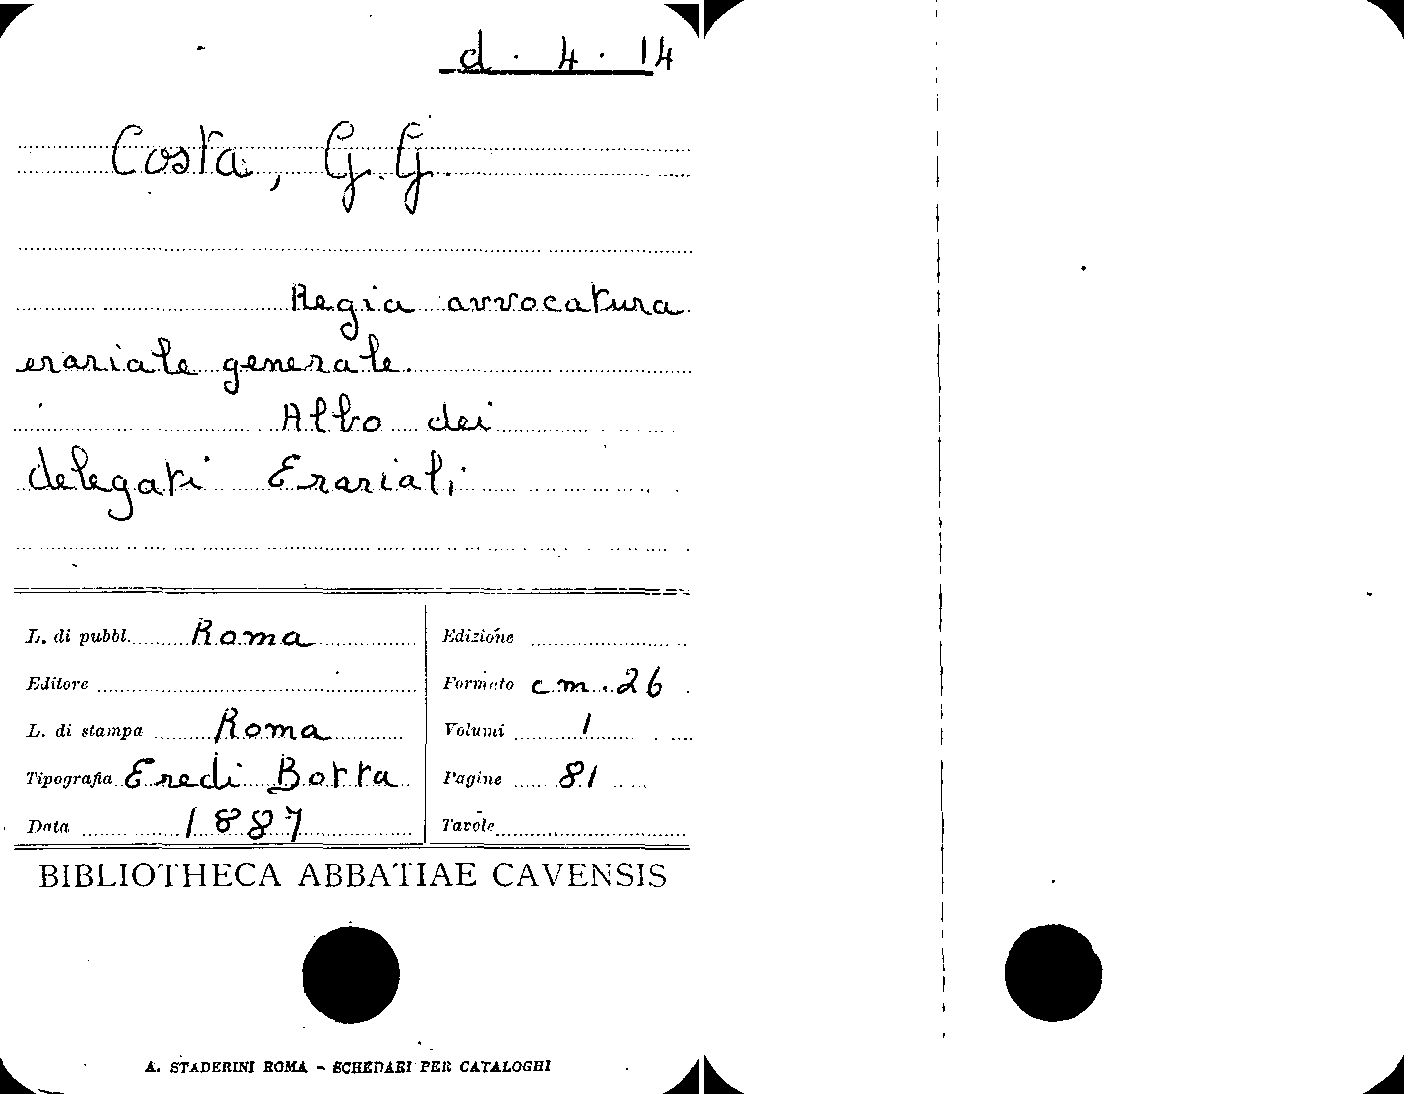 d. 4. 14
Costa, G. G.
Regia avvocatura
erariale generale.
Albo dei
delegati Erariali
L. di pubbl. Roma
Editore
L. di stampa Roma
Tipografia Eredi Botta
Data 1887
Edizione
Formato cm. 26
Volumi 1
Pagine 81
Tavole
BIBLIOTHECA ABBATIAE CAVENSIS
A. STADERINI ROMA - SCHEDARI PER CATALOGHI